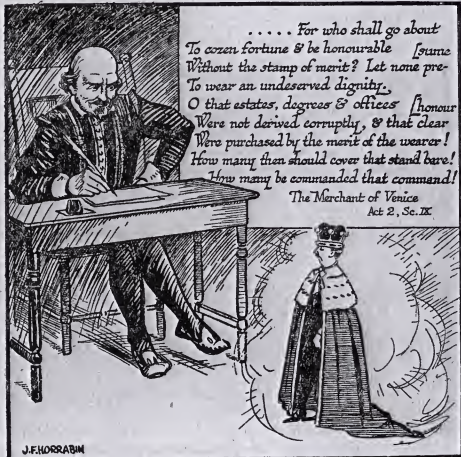 ..... For who shall go about
To cozen fortune & be honourable [sume
Without the stamp of merit? Let none pre-
To wear an undeserved dignity.
O that estates, degrees & offices [honour
Were not derived corruptly, & that clear
Were purchased by the merit of the wearer!
How many then should cover that stand bare!
How many be commanded that command!
The Merchant of Venice
Act 2, Sc. IX
J.F.HORRABIN